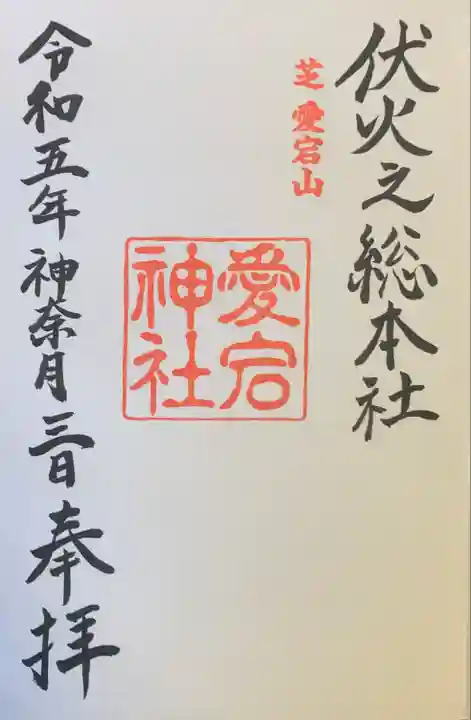 伏火之総本社
芝 愛宕山
愛宕
神社
令和五年 神奈月 三日 奉拝